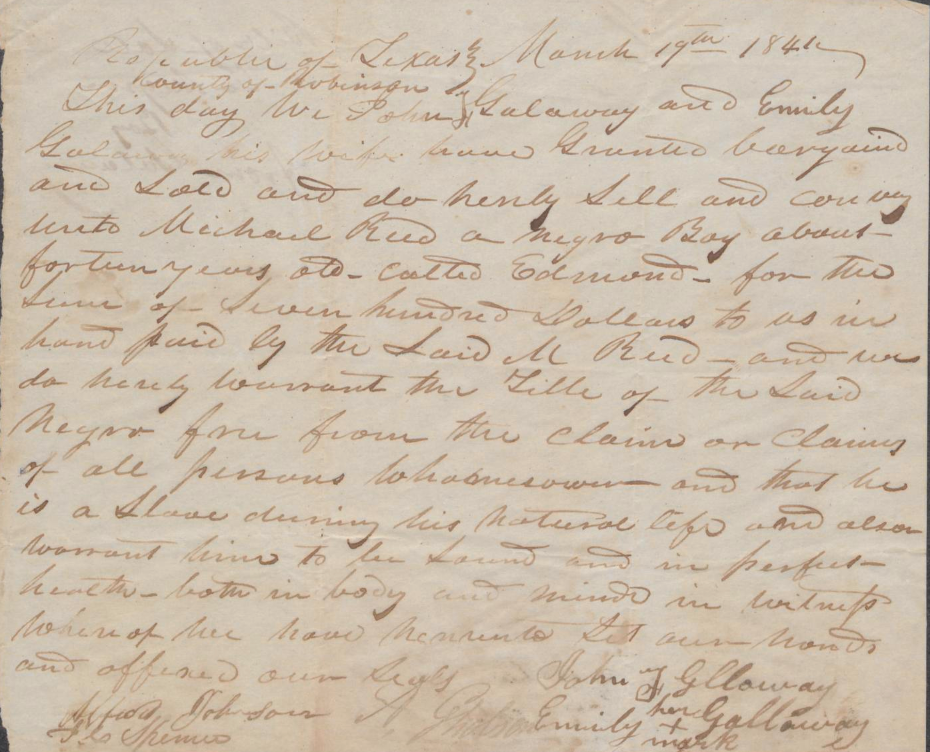 Republic of Texas } March 19th 1844
County of Robinson
This day We John Galaway and Emily
Galaway his wife have Granted bargaind
and Sold and do herby Sell and convay
unto Michael Reed a negro Boy about
forteen years old - called Edmond - for the
Sum of Seven hundred Dollars to us in
hand paid by the Said M Reed - and we
do herely warrant the Title of the Said
Negro free from the claim or claims
of all persons Whomesoever and that he
is a Slave during his natural life and also
warrant him to be Sound and in perfect
health - both in body and minde in witness
whereof we have hereunto Set our hands
and affixed our Seals John Galloway
Johnson Emily her Galloway
Spence + mark